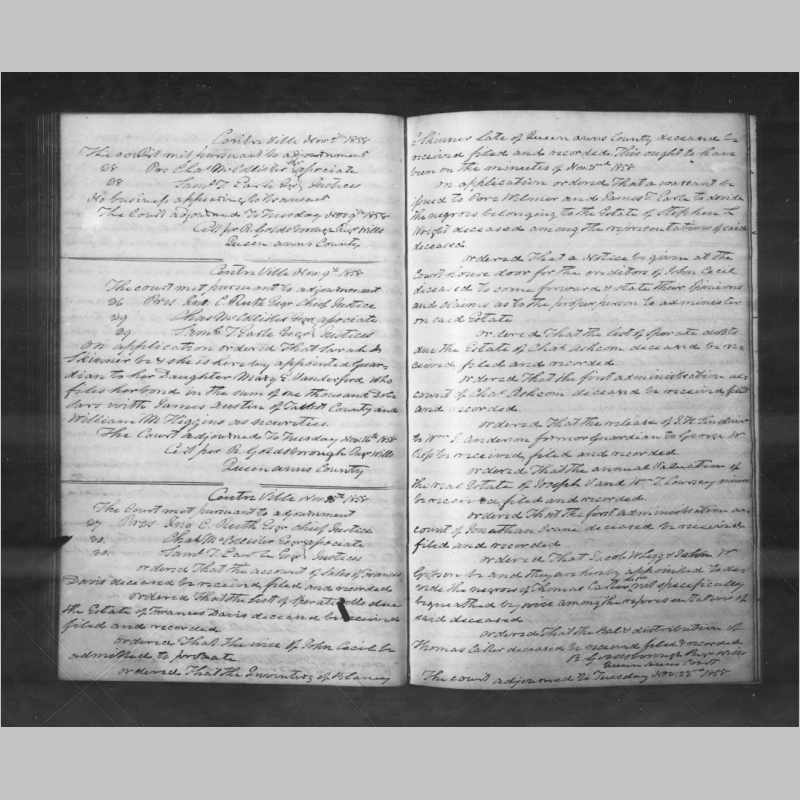 Centre Ville Nov 2nd 1858
The court met pursuant to adjournment
28 Pres Chas McCollister Esqr associate
28 Saml T. Earle Esqr Justices
No business appearing to transact
The Court adjourned to Tuesday Nov 9th 1858
Cert per R. Goldsborough Regr Wills
Queen anns County
Centre Ville Nov. 9th 1858
The court met pursuant to adjournment
26 Pres C. Ruth Esqr Chief Justice
29 Chas McCollister Esqr associate
29 Saml T Earle Esqr Justices
on application ordered That Sarah
Skinner be & she is hereby appointed Guar
dian to her Daughter Mary E Vanderford who
files her bond in the sum of one thousand Dol
lars with James Austin of Talbot County and
William M. Higgins as securities.
The Court adjourned To Tuesday Nov 16th 1858
Cert per R. Goldsborough Regr Wills
Queen anns County
Centre Ville Nov 16th 1858
The Court met pursuant to adjournment
27 Pres C. Ruth Esqr Chief Justice
30 Chas McCollister Esqr associate
30 Saml T. Earle Esqr Justices
ordered That the account of Sales of Frances
Davis deceased be received filed and recorded
ordered That the List of Sperate debts due
the Estate of Frances Davis deceased be received
filed and recorded
ordered That the will of John Cecil be
admitted to probate
ordered That the Inventory of Blaney
Skinner late of Queen anns County deceased be
received filed and recorded. This ought to have
been on the minutes of Nov 1858
on application ordered That a warrant be
issued to Pere Wilmer and James T. Earle to divide
the negroes belonging to the Estate of Stephen
Wright deceased among the representatives of said
deceased
ordered That a Notice be given at the
Court house door for the creditors of John Cecil
deceased to come forward & state their opinions
and claims as to the proper person to administer
on said Estate
ordered That the List of Sperate debts
due the Estate of Chas Ashcom deceased be re
ceived filed and recorded
ordered That the first administration ac
count of Chas Ashcom deceased be received filed
and recorded.
ordered That the release of
to Wm Anderson former Guardian to George W
be received, filed and recorded
ordered That the annual Valuation of
the real Estate of Joseph and Wm minors
be received, filed and recorded.
ordered That the first administration ac
count of Jonathan Evans deceased be received
filed and recorded
ordered That Jacob and W
be and they are hereby appointed to div
ide the negroes of Thomas Carter dec not specifically
bequeathed by wise among the representatives of
said deceased
ordered That the Bal & distribution of
Thomas Carter deceased be received filed & recorded
R. Goldsborough Regr Wills
Queen anns Court
The court adjourned to Tuesday Nov. 23rd 1858